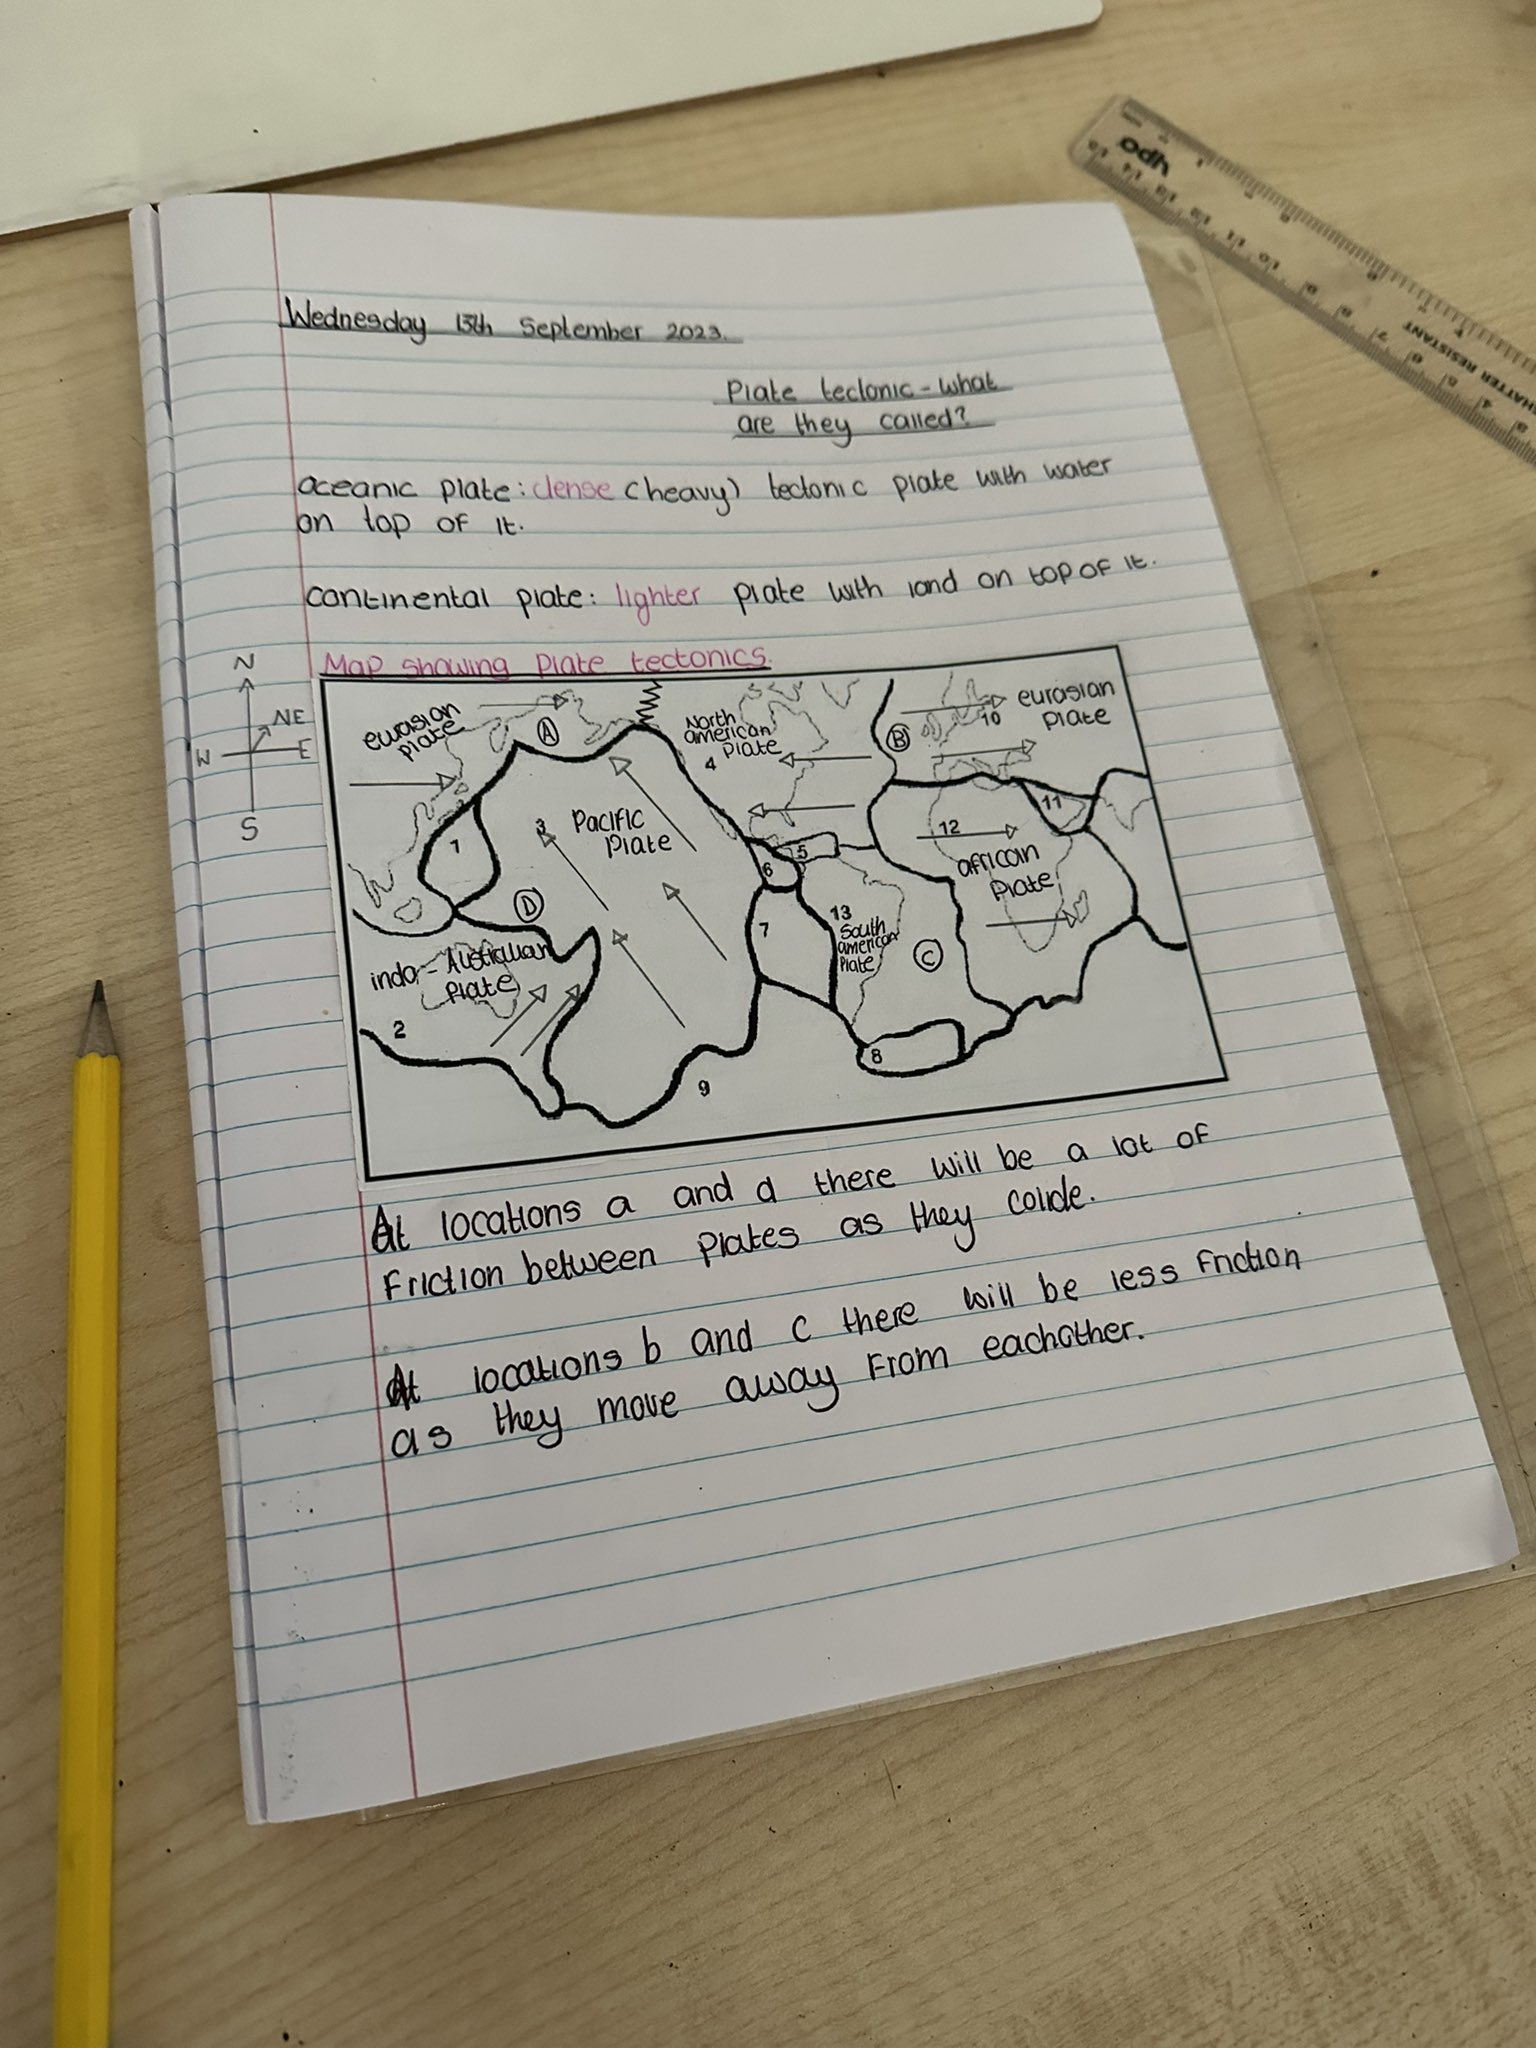 Wednesday 13th September 2023.
Plate tectonic - what
are they called?
oceanic plate: dense (heavy) tectonic plate with water
on top of it.
continental plate: lighter plate with land on top of it.
Map showing plate tectonics.
N
NE
W
E
S
eurasian
plate
A
North
american
plate
4
B
10
eurasian
plate
1
3
Pacific
Plate
5
6
11
12
african
plate
D
7
13
South
american
plate
C
indo-Australian
plate
2
8
9
At locations a and d there will be a lot of
friction between plates as they colide.
At locations b and c there will be less friction
as they move away from eachother.
qpo
SHATTER RESISTANT